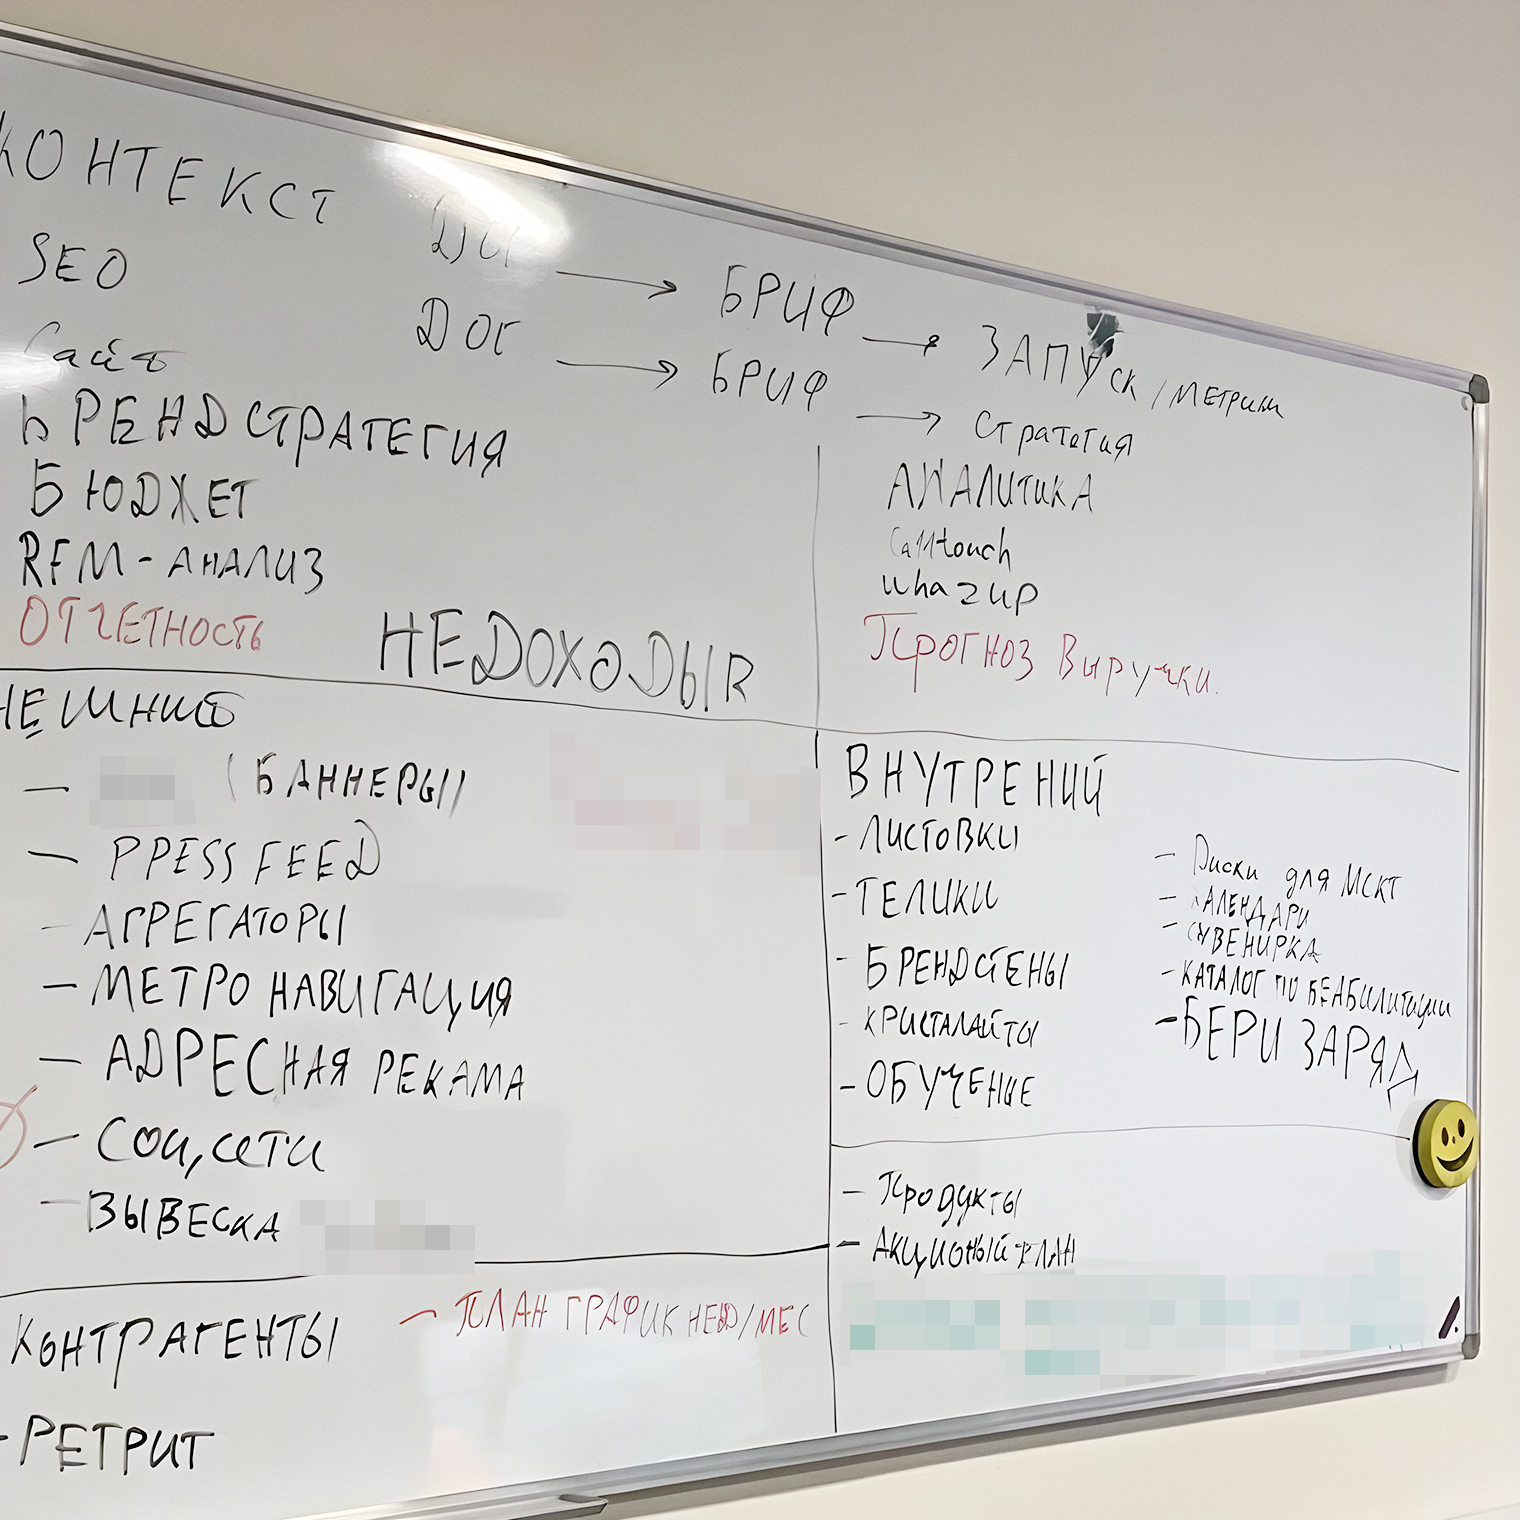 КОНТЕКСТ
SEO
Сайт
БРЕНДСТРАТЕГИЯ
БЮДЖЕТ
RFM-АНАЛИЗ
ОТЧЕТНОСТЬ
→ БРИФ → ЗАПУСК/МЕТРИКИ
ДОГ → БРИФ → Стратегия
НЕДОХОДЫR
АНАЛИТИКА
Calltouch
whazup
Прогноз Выручки.
НЕШНИЙ
— (БАННЕРЫ)
— PPESS FEED
- АГРЕГАТОРЫ
— МЕТРО НАВИГАЦИЯ
— АДРЕСНАЯ РЕКАМА
— Соц,сети
- ВЫВЕСКА
ВНУТРЕНИЙ
- ЛИСТОВКИ
- ТЕЛИКИ
- БРЕНДСТЕНЫ
- КРИСТАЛАЙТЫ
- ОБУЧЕНИЕ
- Диски для МСКТ
- КАЛЕНДАРИ
- СУВЕНИРКА
- КАТАЛОГ ПО РЕАБИЛИТАЦИИ
- БЕРИ ЗАРЯД
- Продукты
- АКЦИОНЫЙ ПЛАН
КОНТРАГЕНТЫ
- РЕТРИТ
- ПЛАН ГРАФИК НЕД/МЕС